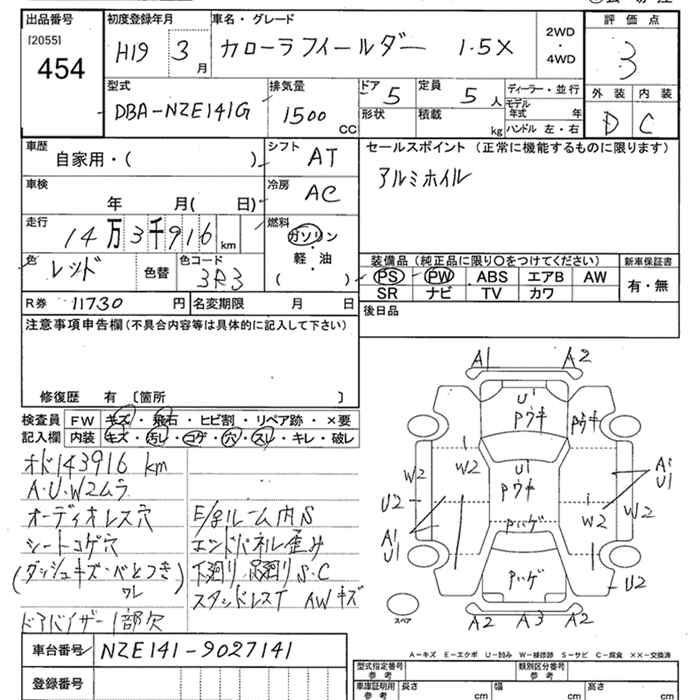 出品番号 初度登録年月 車名・グレード 評価点
[2055] 454 H19 3月 カローラフィールダー 1.5X 2WD・4WD 3
型式 排気量 ドア 定員 ディーラー・並行 外装 内装
DBA-NZE141G 1500 CC 5 5人 モデル年式 年 D C
形状 積載 kg ハンドル 左・右
車歴 自家用・( ) シフト AT セールスポイント (正常に機能するものに限ります)
車検 年 月( 日) 冷房 AC アルミホイル
走行 14万3千916km 燃料 ガソリン・軽・油 ( )
色 レッド 色替 色コード 3R3 装備品 (純正品に限り〇をつけてください) 新車保証書
PS PW ABS エアB AW 有・無
SR ナビ TV カワ
R券 11730円 名変期限 月 日 後日品
注意事項申告欄 (不具合内容等は具体的に記入して下さい)
修復歴 有 〔箇所 〕
検査員記入欄 FW キズ・飛石・ヒビ割・リペア跡・×要
内装 キズ・汚レ・コゲ・穴・スレ・キレ・破レ
オド143916 km
A・U・W2ムラ
オーディオレス穴 E/gルーム内S
シートコゲ穴 エンドパネル歪み
(ダッシュキズ・ベとつき ワレ) 下廻り 足廻り S・C
スタッドレスT AWキズ
ドアバイザー1部欠
A1 A2
U1 Pウキ Pウキ
W2 U1 Pウキ A1 U1
W2 U2 W2 W2
A1 U1 Pハゲ
Pハゲ U2
A2 A3 A2
スペア
A-キズ E-エクボ U-凹み W-補修跡 S-サビ C-腐食 ××-交換済
車台番号 NZE141-9027141 型式指定番号 参考 類別区分番号 参考
登録番号 車庫証明用 参考 長さ cm 幅 cm 高さ cm